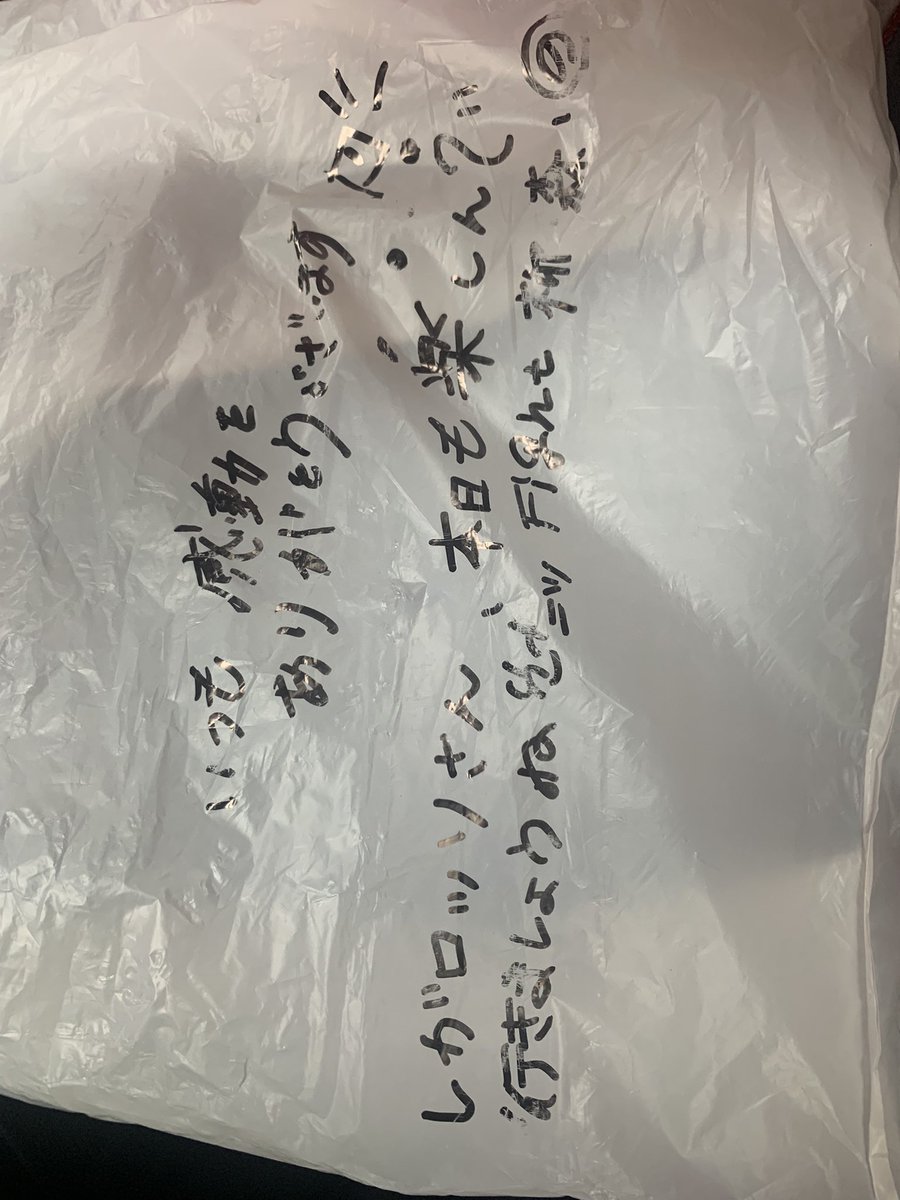 いつも 感動を
ありがとうございます
レガロッソさん 本日も楽しんで
行きましょうね Fight